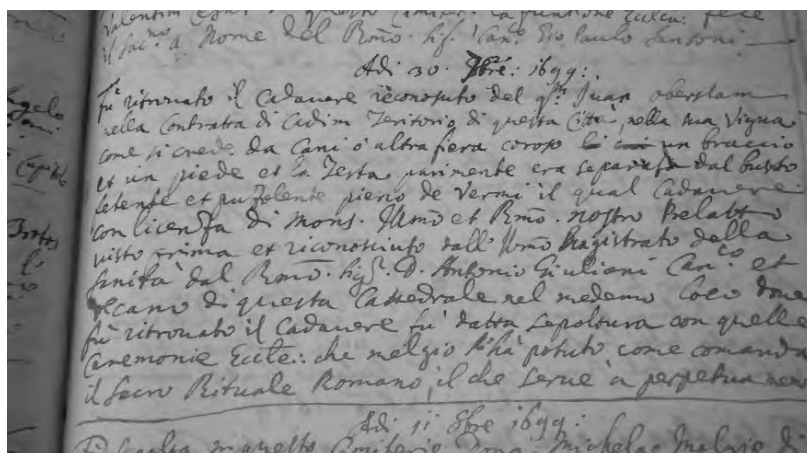 il Sac.no a Nome del Rmo. Sig. Can.co Gio Paulo Santoni.
Adi 30. 7bre: 1699:
Fù ritrovato il Cadavere riconosuto del q.m Juan oberstam
nella Contrata di Cadim Teritorio di questa Città, nella sua Vigna
come si crede da Cani ò altra fiera coroso un braccio
et un piede et la Testa parimente era separata dal busto
fetente et puzolente pieno de Vermi il qual Cadavere
con licenza di Mons. Illmo et Rmo. nostro Prelatto
visto prima et riconosciuto dall' Illmo Magistrato della
sanità dal Rmo. Sig. D. Antonio Giuliani Can.co et
Decano di questa Cattedrale nel medemo loco dove
fù ritrovato il Cadavere fù datta sepoltura con quelle
Ceremonie Eccle: che melgio si hà potuto come comanda
il Sacro Rituale Romano, il che serve à perpetua mem
Adi 11 8bre 1699:
in questo Cimiterio Dona Michela di